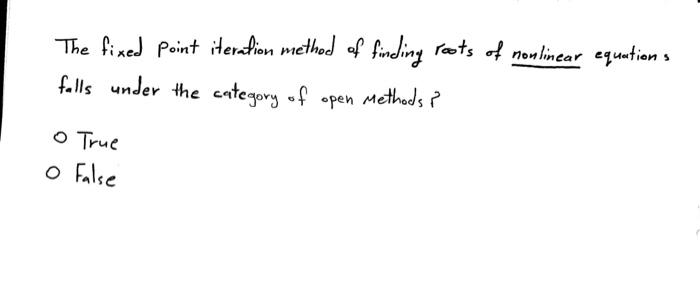 The fixed Point iteration method of finding roots of nonlinear equations
falls under the category of open Methods?
○ True
○ False